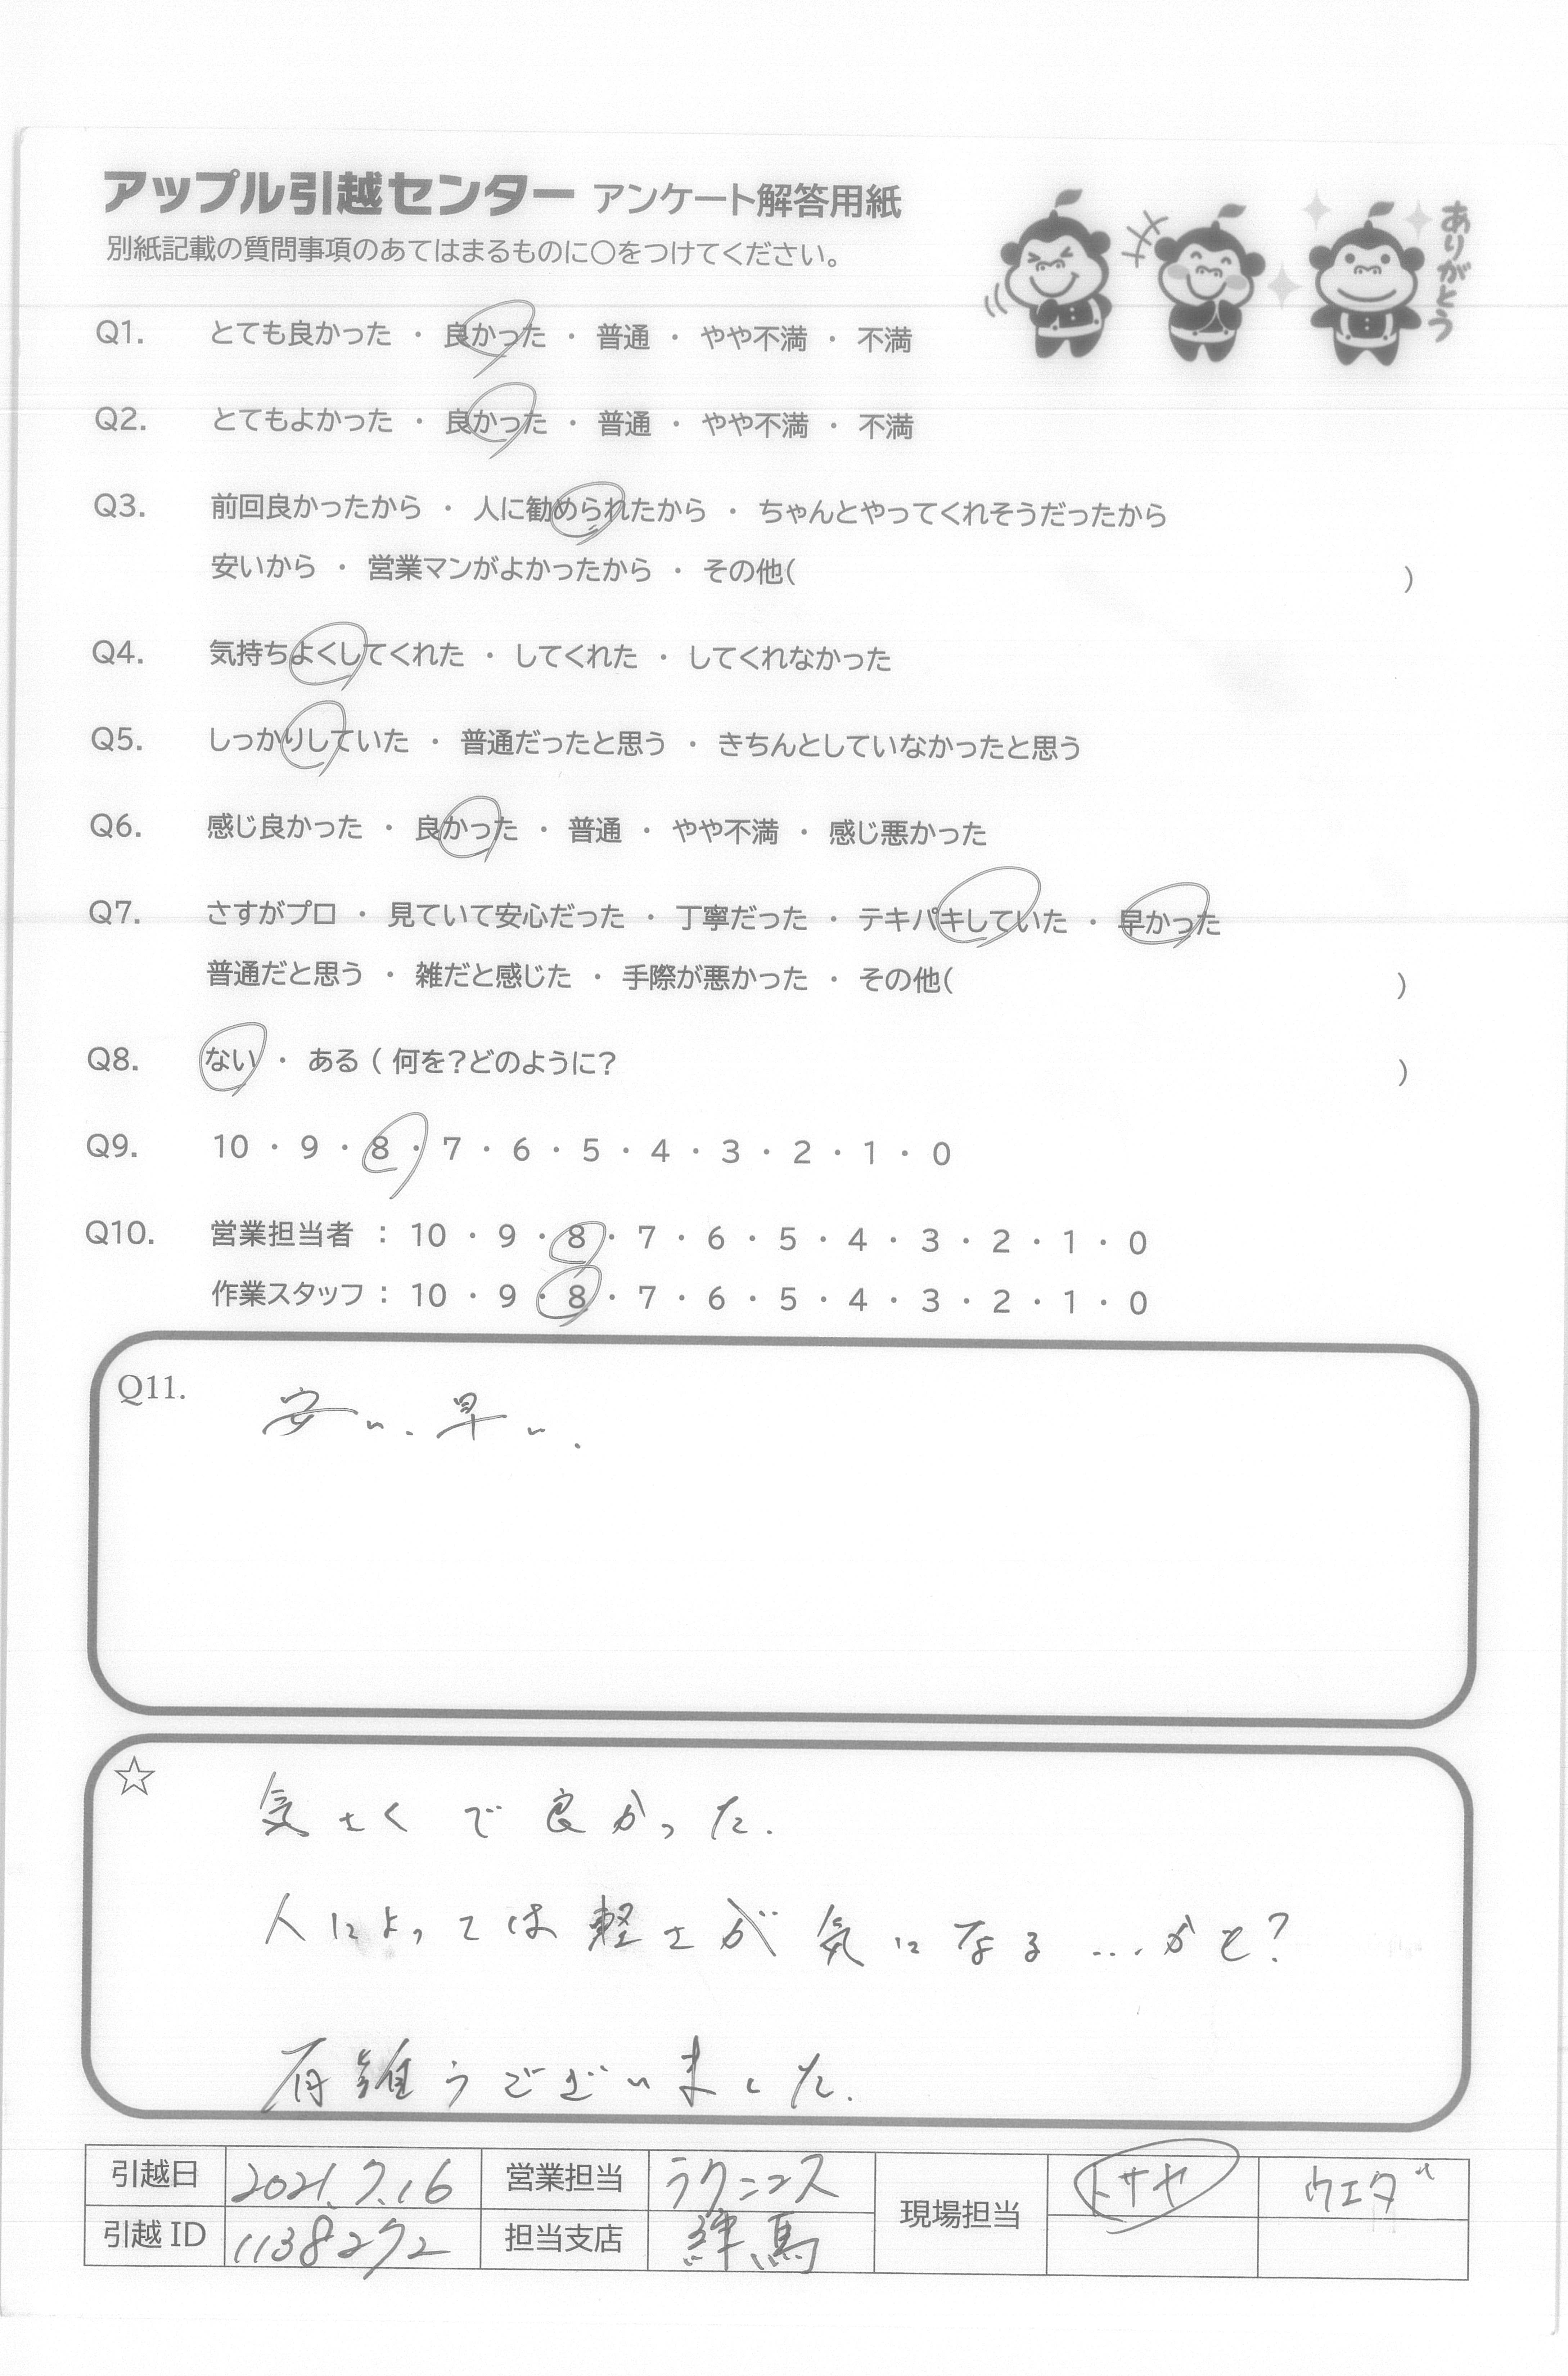 アップル引越センター アンケート解答用紙
別紙記載の質問事項のあてはまるものに○をつけてください。
ありがとう
Q1. とても良かった ・ 良かった ・ 普通 ・ やや不満 ・ 不満
Q2. とてもよかった ・ 良かった ・ 普通 ・ やや不満 ・ 不満
Q3. 前回良かったから ・ 人に勧められたから ・ ちゃんとやってくれそうだったから
安いから ・ 営業マンがよかったから ・ その他( )
Q4. 気持ちよくしてくれた ・ してくれた ・ してくれなかった
Q5. しっかりしていた ・ 普通だったと思う ・ きちんとしていなかったと思う
Q6. 感じ良かった ・ 良かった ・ 普通 ・ やや不満 ・ 感じ悪かった
Q7. さすがプロ ・ 見ていて安心だった ・ 丁寧だった ・ テキパキしていた ・ 早かった
普通だと思う ・ 雑だと感じた ・ 手際が悪かった ・ その他( )
Q8. ない ・ ある ( 何を?どのように? )
Q9. 10 ・ 9 ・ 8 ・ 7 ・ 6 ・ 5 ・ 4 ・ 3 ・ 2 ・ 1 ・ 0
Q10. 営業担当者 : 10 ・ 9 ・ 8 ・ 7 ・ 6 ・ 5 ・ 4 ・ 3 ・ 2 ・ 1 ・ 0
作業スタッフ : 10 ・ 9 ・ 8 ・ 7 ・ 6 ・ 5 ・ 4 ・ 3 ・ 2 ・ 1 ・ 0
Q11. 安い、早い.
☆ 気さくで良かった.
人によっては軽さが気になる….かも?
有難うございました.
引越日 2021.7.16 営業担当 現場担当 トサヤ ウエダ
引越ID 1138272 担当支店 練馬